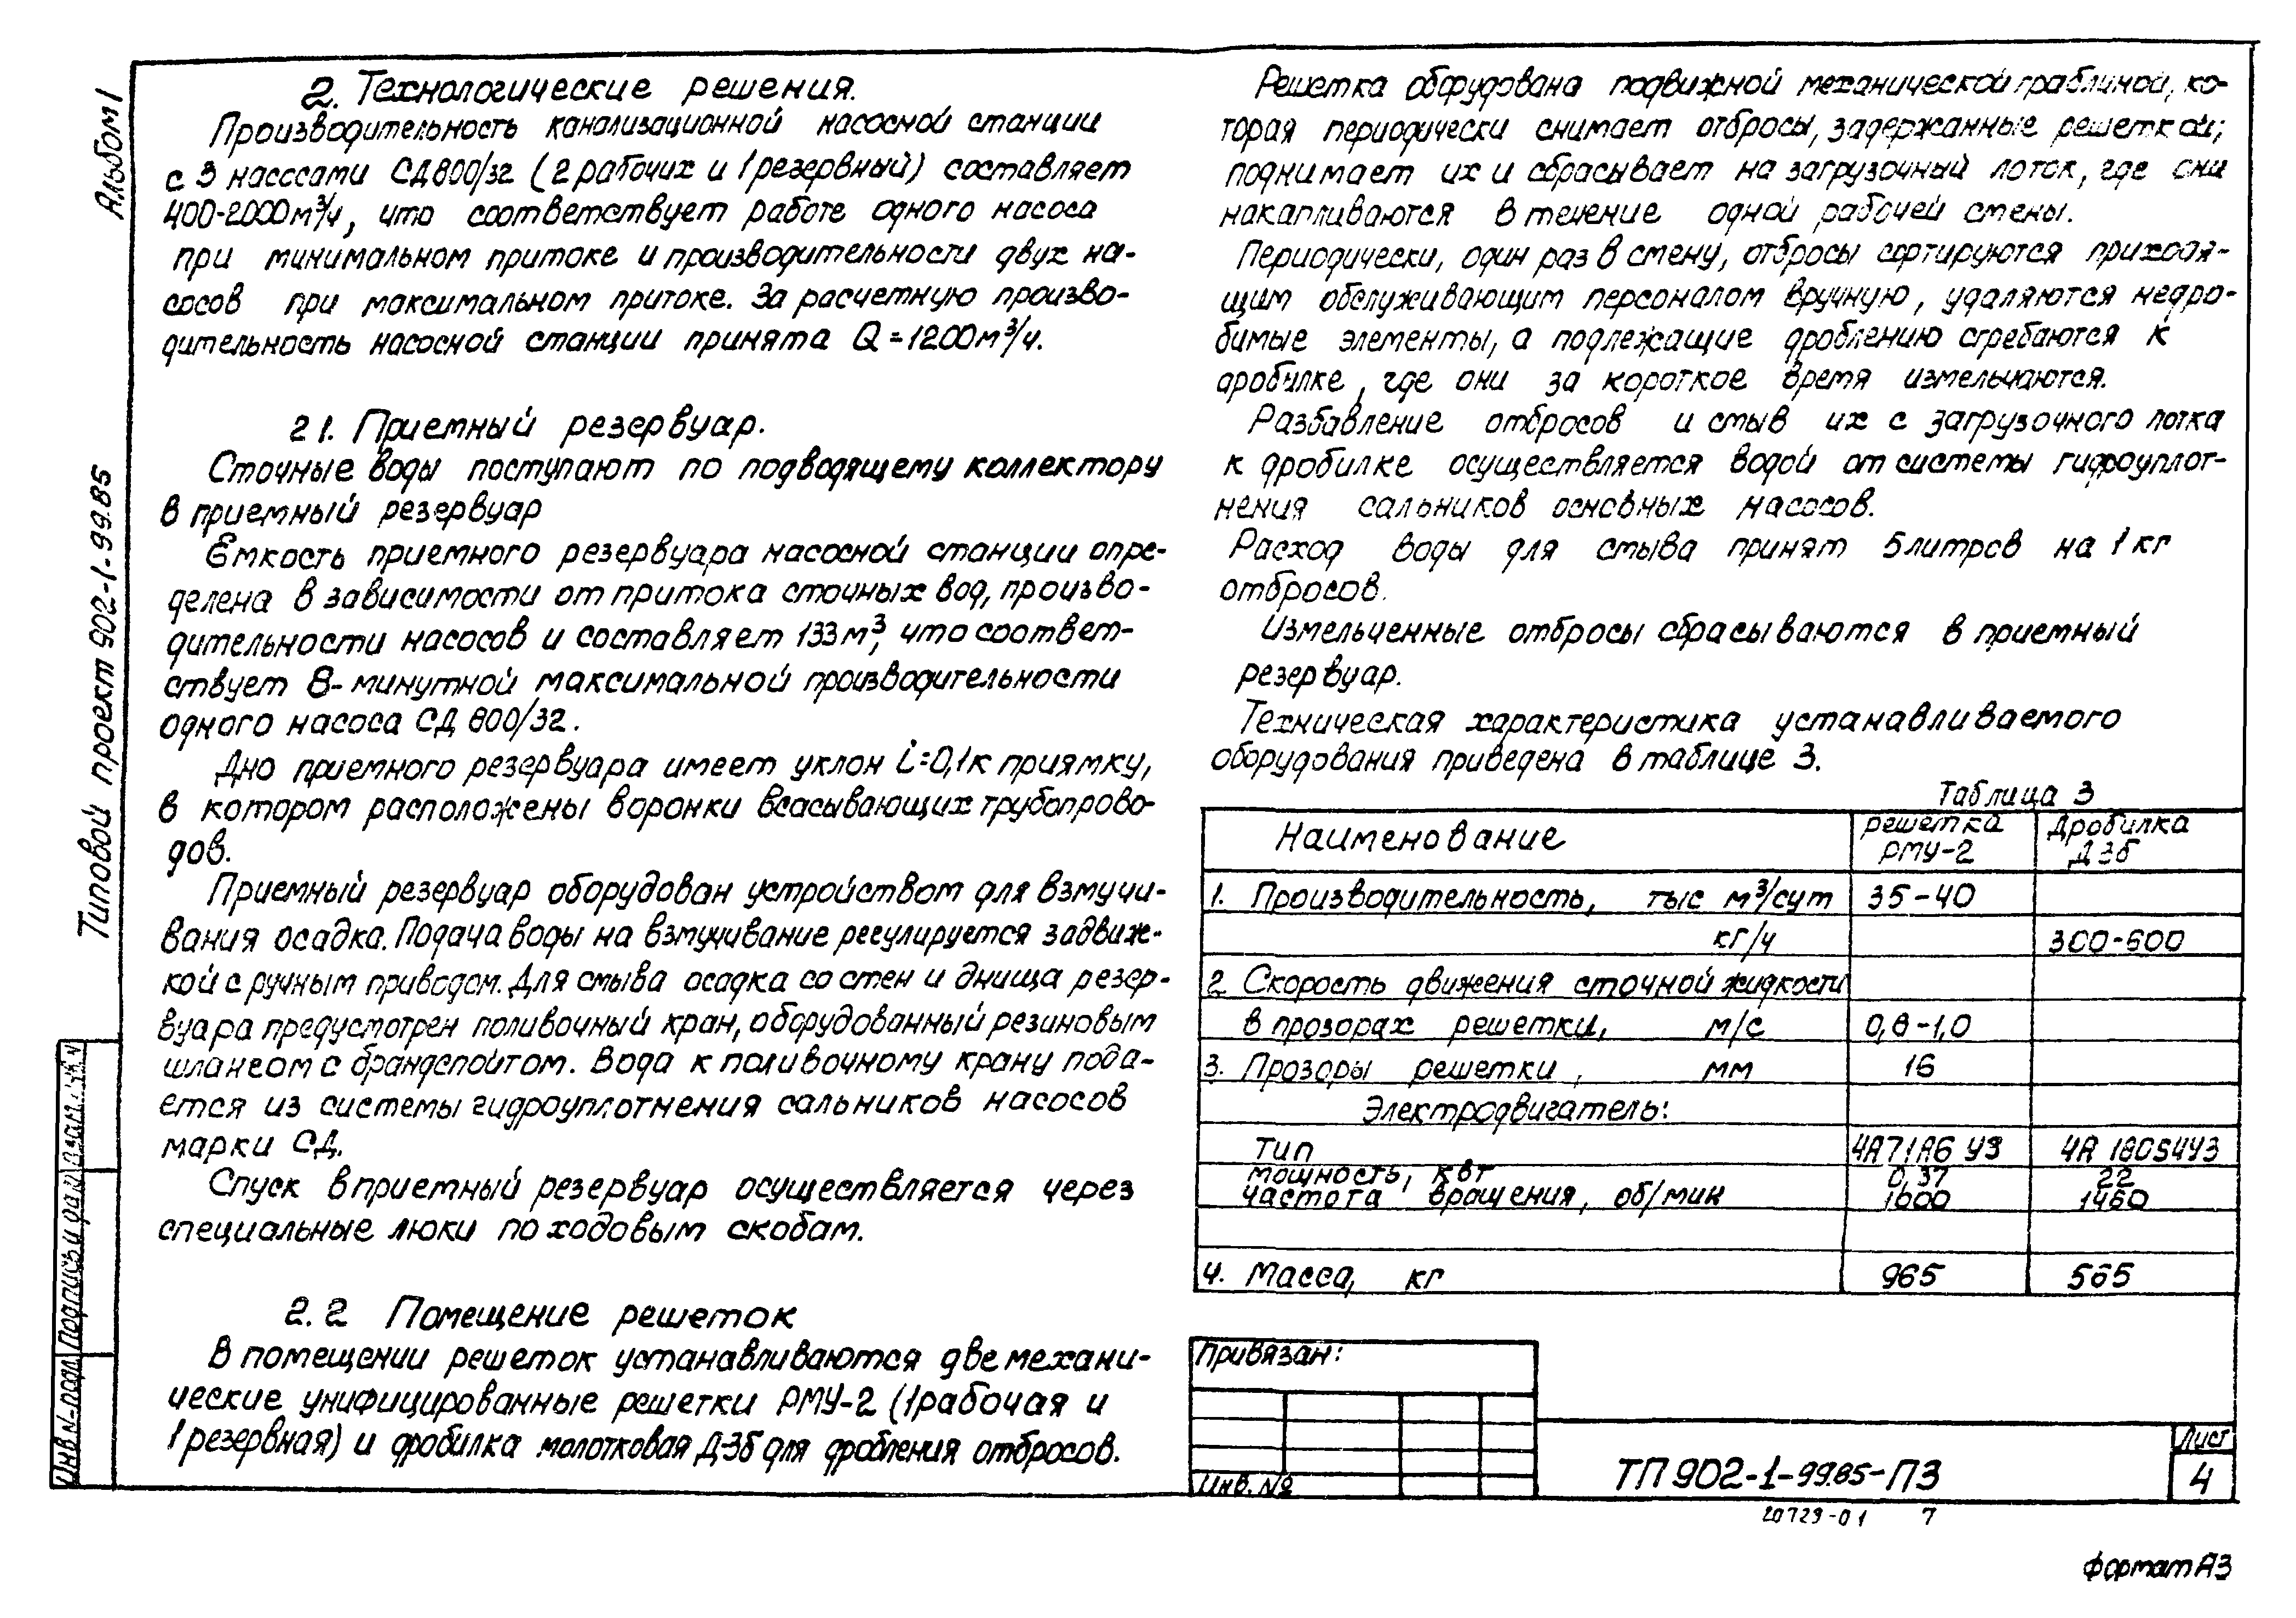 Альбом 1
Типовой проект 902-1-99.85
2. Технологические решения.
Производительность канализационной насосной станции
с 3 насосами СД 800/32 (2 рабочих и 1 резервный) составляет
400-2000 м³/ч, что соответствует работе одного насоса
при минимальном притоке и производительности двух на-
сосов при максимальном притоке. За расчетную произво-
дительность насосной станции принята Q = 1200 м³/ч.
2.1. Приемный резервуар.
Сточные воды поступают по подводящему коллектору
в приемный резервуар
Емкость приемного резервуара насосной станции опре-
делена в зависимости от притока сточных вод, произво-
дительности насосов и составляет 133 м³, что соответ-
ствует 8-минутной максимальной производительности
одного насоса СД 800/32.
Дно приемного резервуара имеет уклон i=0,1 к приямку,
в котором расположены воронки всасывающих трубопрово-
дов.
Приемный резервуар оборудован устройством для взмучи-
вания осадка. Подача воды на взмучивание регулируется задвиж-
кой с ручным приводом. Для смыва осадка со стен и днища резер-
вуара предусмотрен поливочный кран, оборудованный резиновым
шлангом с брандспойтом. Вода к поливочному крану пода-
ется из системы гидроуплотнения сальников насосов
марки СД.
Спуск в приемный резервуар осуществляется через
специальные люки по ходовым скобам.
2.2 Помещение решеток
В помещении решеток устанавливаются две механи-
ческие унифицированные решетки РМУ-2 (1 рабочая и
1 резервная) и дробилка молотковая Д-3б для дробления отбросов.
Решетка оборудована подвижной механической граблиной, ко-
торая периодически снимает отбросы, задержанные решеткой,
поднимает их и сбрасывает на загрузочный лоток, где они
накапливаются в течение одной рабочей смены.
Периодически, один раз в смену, отбросы сортируются приходя-
щим обслуживающим персоналом вручную, удаляются недро-
бимые элементы, а подлежащие дроблению сгребаются к
дробилке, где они за короткое время измельчаются.
Разбавление отбросов и смыв их с загрузочного лотка
к дробилке осуществляется водой от системы гидроуплот-
нения сальников основных насосов.
Расход воды для смыва принят 5 литров на 1 кг
отбросов.
Измельченные отбросы сбрасываются в приемный
резервуар.
Техническая характеристика устанавливаемого
оборудования приведена в таблице 3.
Таблица 3
Наименование решетка РМУ-2 Дробилка Д 3б
1. Производительность, тыс м³/сут 35-40
кг/ч 300-600
2 Скорость движения сточной жидкости
в прозорах решетки, м/с 0,8-1,0
3. Прозоры решетки, мм 16
Электродвигатель:
тип 4А71А6 У3 4А 180S4У3
мощность, квт 0,37 22
частота вращения, об/мин 1000 1460
4. Масса, кг 965 565
Привязан:
Инв. №
ТП 902-1-99.85-ПЗ
Лист
4
20729-01 7
Формат А3
Инв. N-подл.
Подпись и дата